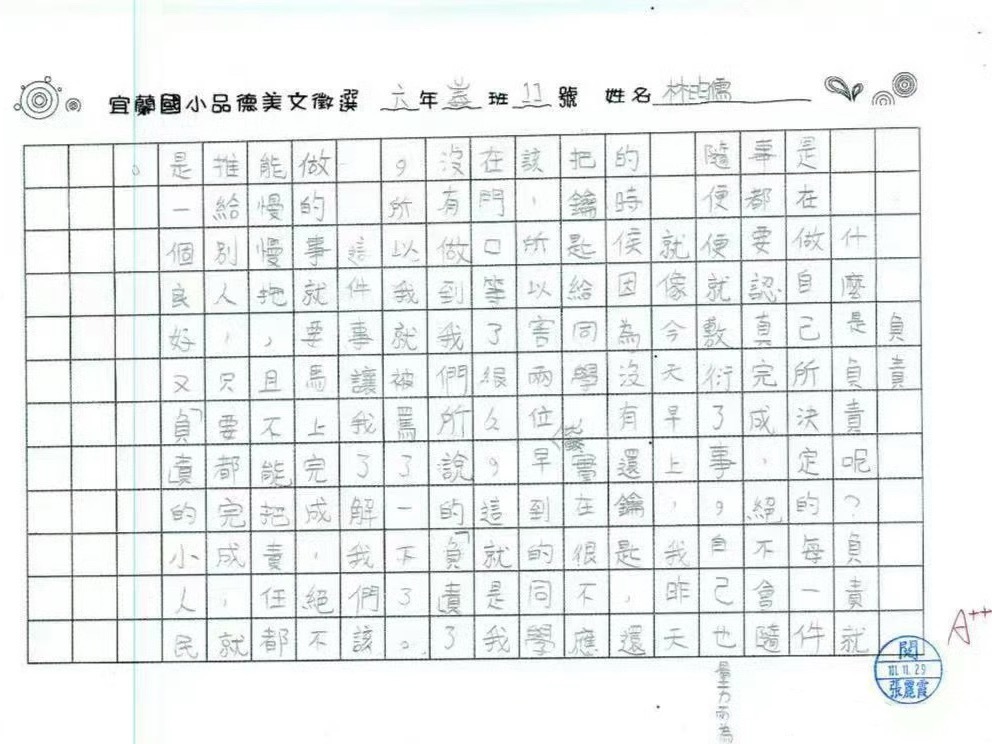 宜蘭國小品德美文徵選 六年班11號 姓名林昀儒
負責
什麼是負責呢？負責就
是在做自己所決定的每一件
事都要認真完成，絕不會隨
隨便便就敷衍了事，自己也
量力而為
就像今天早上，我昨天
的時候因為沒有還鑰匙，還
把鑰匙給同學實在很不應
該，所以害兩位早到的同學
在門口等了很久，這就是我
沒有做到我們所說的「負責」了
，所以我就被罵了一下了。
這件事讓我了解我們該
做的事就要馬上完成，絕不
能慢慢把，且不能把責任都
推給別人，只要都完成，就
是一個良好又「負責」的小人民
。
A++
閱
101.11.29
張麗霞